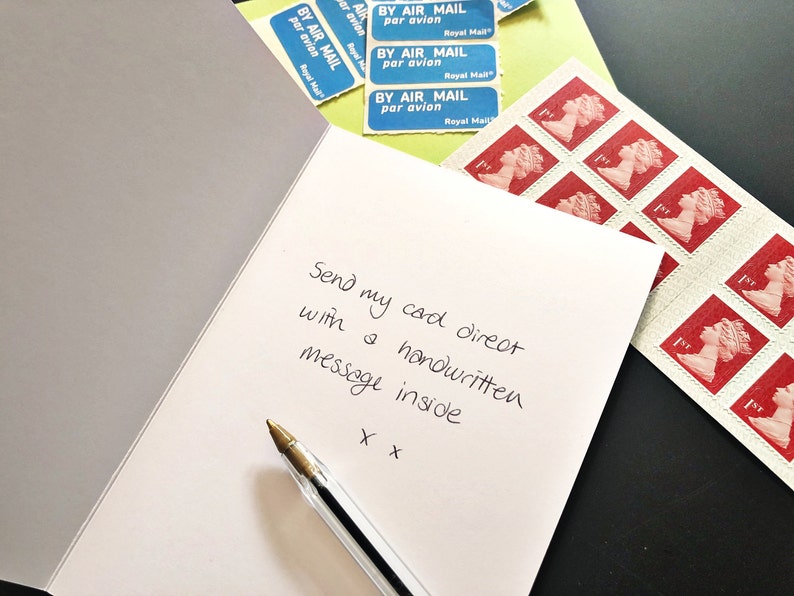 BY AIR MAIL
par avion
Royal Mail®
BY AIR MAIL
par avion
Royal Mail®
BY AIR MAIL
par avion
Royal Mail®
BY AIR MAIL
par avion
Royal Mail®
1ST
1ST
1ST
1ST
1ST
1ST
1ST
Send my card direct
with a handwritten
message inside
x x